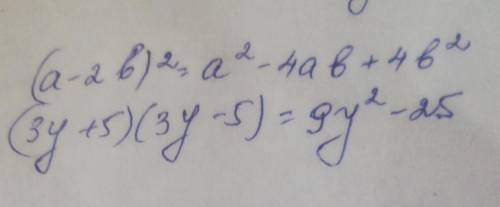 (a-2b)² = a² - 4ab + 4b²
(3y+5)(3y-5) = 9y² - 25